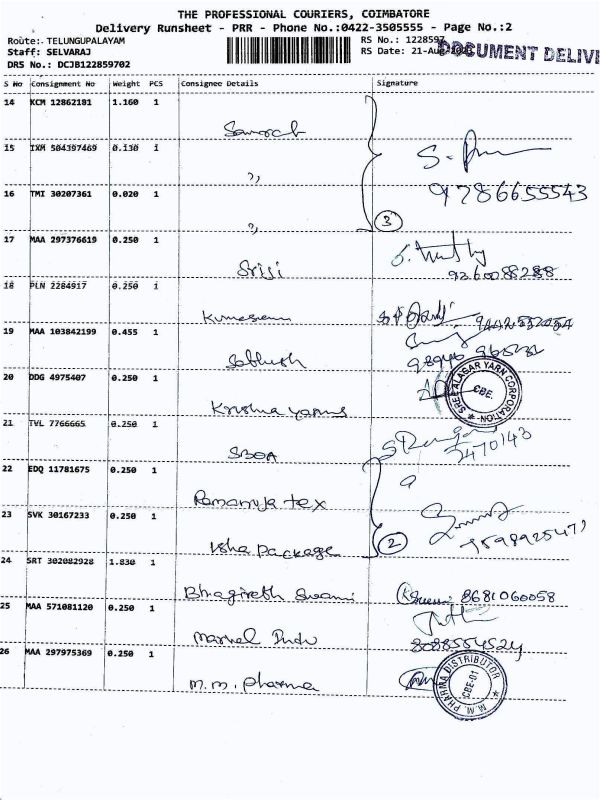 THE PROFESSIONAL COURIERS, COIMBATORE
Delivery Runsheet - PRR - Phone No.:0422-3505555 - Page No.:2
Route:- TELUNGUPALAYAM
RS No.: 1228597
Staff: SELVARAJ
RS Date: 21-Aug
DOCUMENT DELIV
DRS No.: DCJB122859702
S No Consignment No Weight PCS Consignee Details Signature
14 KCM 12862181 1.160 1
15 IXM 504397469 0.130 1
9786655543
16 TMI 30207361 0.020 1
3
17 MAA 297376619 0.250 1
Sriji
9360088288
18 PLN 2284917 0.250 1
19 MAA 103842199 0.455 1
20 DDG 4975407 0.250 1
SREE ALAGAR YARN CORPORATION
CBE.
Krishna yarns
21 TVL 7766665 0.250 1
2470143
SBOA
22 EDQ 11781675 0.250 1
Ramanuja tex
23 SVK 30167233 0.250 1
Usha package
2
24 SRT 302082928 1.830 1
Bhagireth Swami
8681060058
25 MAA 571081120 0.250 1
Marvel Indu
8088554524
26 MAA 297975369 0.250 1
M.M. Pharma
M. M. PHARMA DISTRIBUTOR
CBE-01